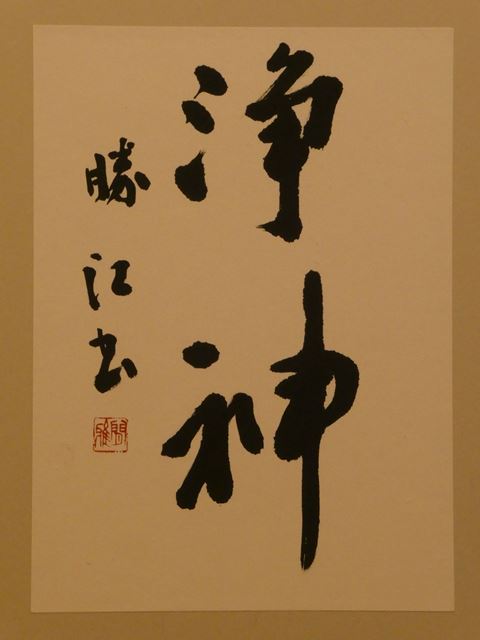 浄神
勝江書